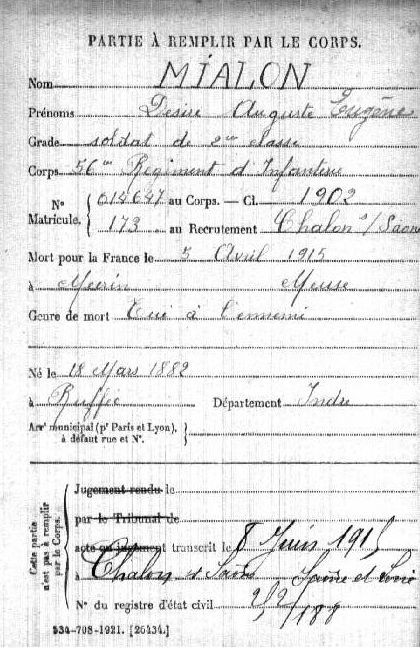 PARTIE À REMPLIR PAR LE CORPS.
Nom MIALON
Prénoms Desire Auguste Eugène
Grade soldat de 2me classe
Corps 56me Régiment d'Infanterie
N° Matricule. 014647 au Corps. — Cl. 1902
173 au Recrutement Chalon s/ Saone
Mort pour la France le 5 Avril 1915
à Mécrin Meuse
Genre de mort Tué à l'ennemi
Né le 18 Mars 1882
à Ruffec Département Indre
Arrt municipal (pr Paris et Lyon), à défaut rue et N°.
Cette partie n'est pas à remplir par le Corps.
Jugement rendu le
par le Tribunal de
acte ou jugement transcrit le 8 Juin 1915
à Chalon s/ Saône Saône et Loire
N° du registre d'état civil
534-708-1921. [26434.]